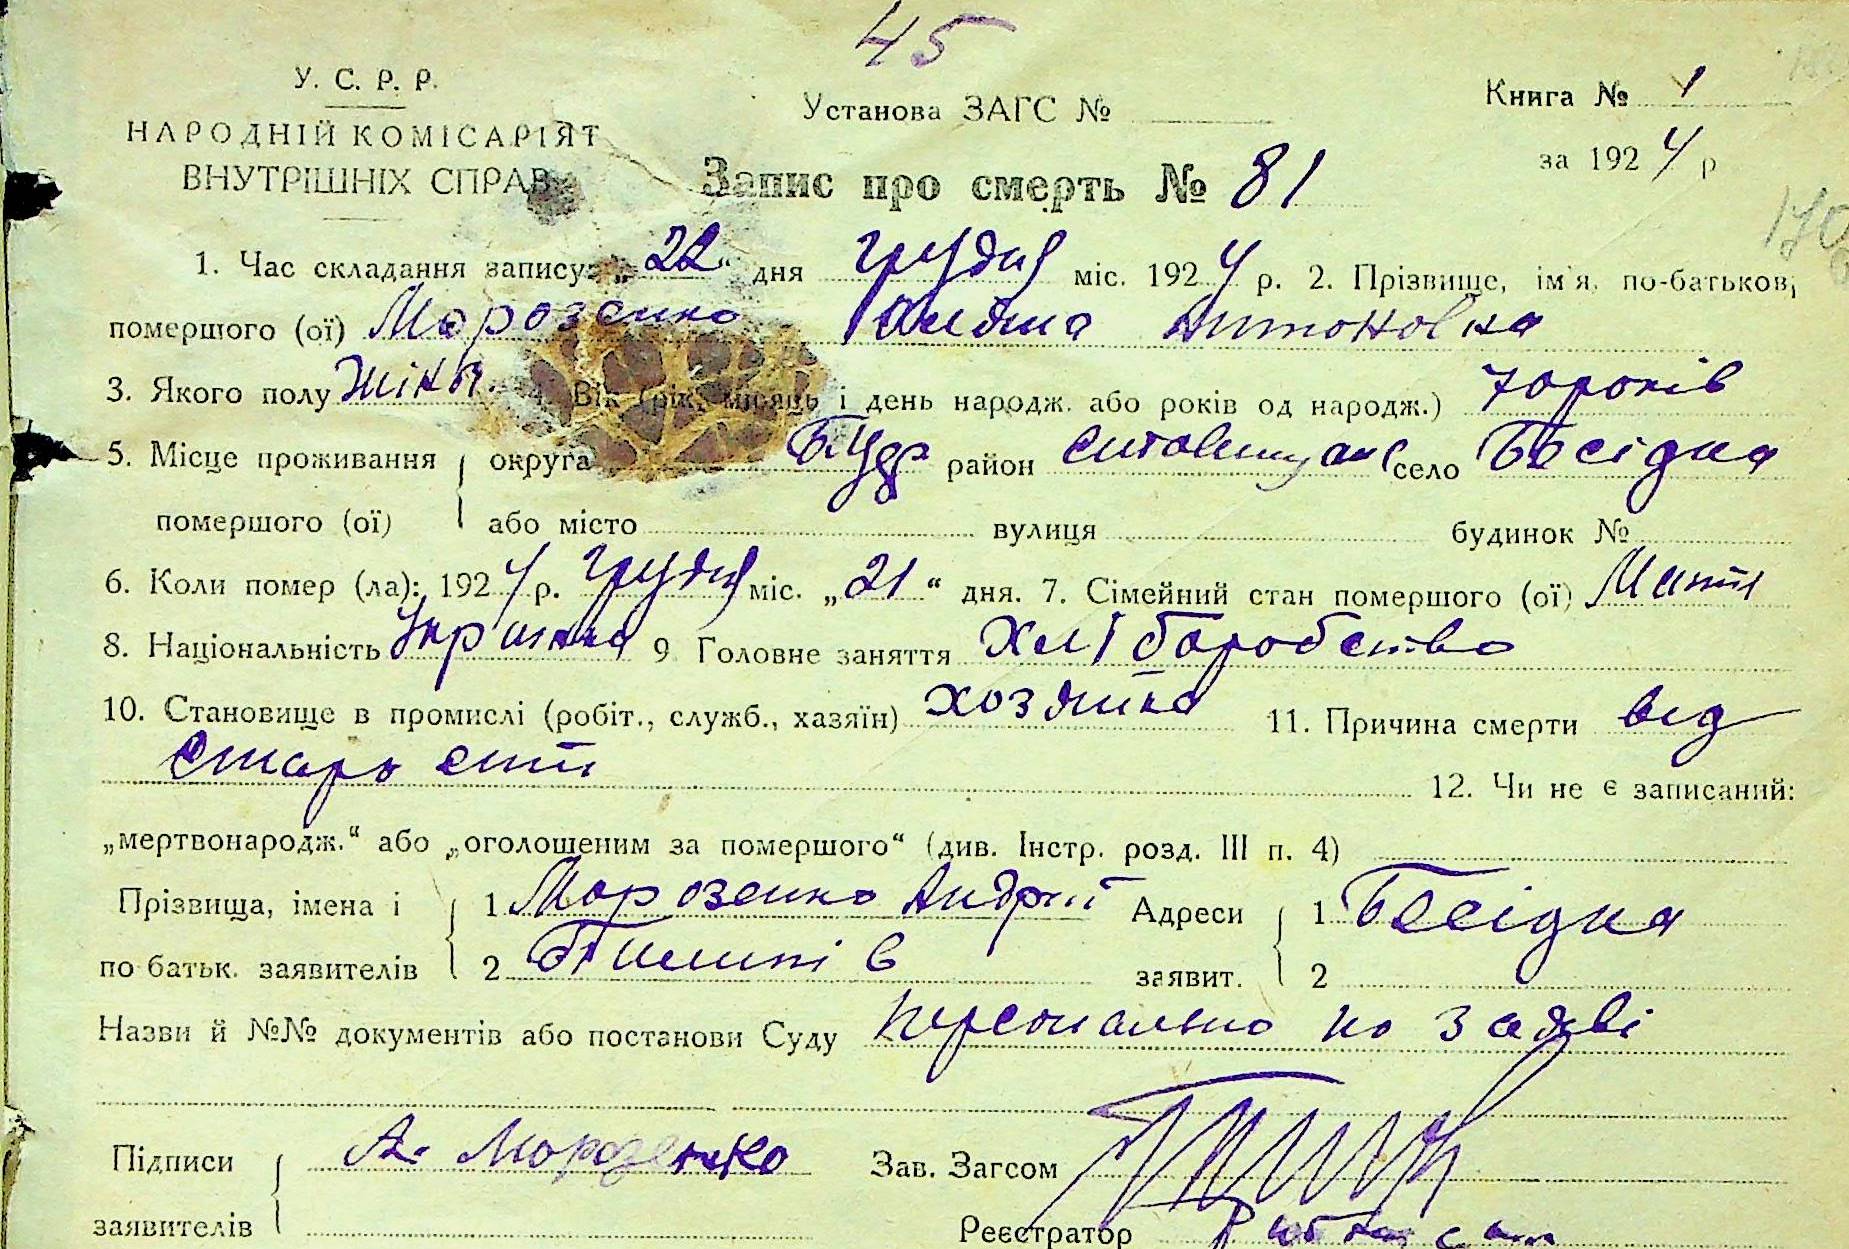 45
У. С. Р. Р.
НАРОДНІЙ КОМІСАРІЯТ
ВНУТРІШНІХ СПРАВ
Установа ЗАГС №
Книга № 1
за 1924 р
Запис про смерть № 81
170
1. Час складання запису: „22" дня грудня міс. 1924 р. 2. Прізвище, ім'я, по-батькові
помершого (ої) Морозенко Антоновна
3. Якого полу жіноч. 4. Вік (рік, місяць і день народж. або років од народж.) 70 років
5. Місце проживання округа район село Бесідка
помершого (ої) або місто вулиця будинок №
6. Коли помер (ла): 1924 р. грудня міс. „21" дня. 7. Сімейний стан помершого (ої) Мати
8. Національність Українка 9 Головне заняття Хліборобство
10. Становище в промислі (робіт., служб., хазяїн) хозяйка 11. Причина смерти від
старости
12. Чи не є записаний:
„мертвонародж." або „оголошеним за помершого" (див. Інстр. розд. III п. 4)
Прізвища, імена і 1 Морозенко Андрій Адреси 1 Бесідка
по батьк. заявителів 2 Пилипів заявит. 2
Назви й №№ документів або постанови Суду персонально по заяві
Підписи А. Морозенко Зав. Загсом
заявителів Реєстратор